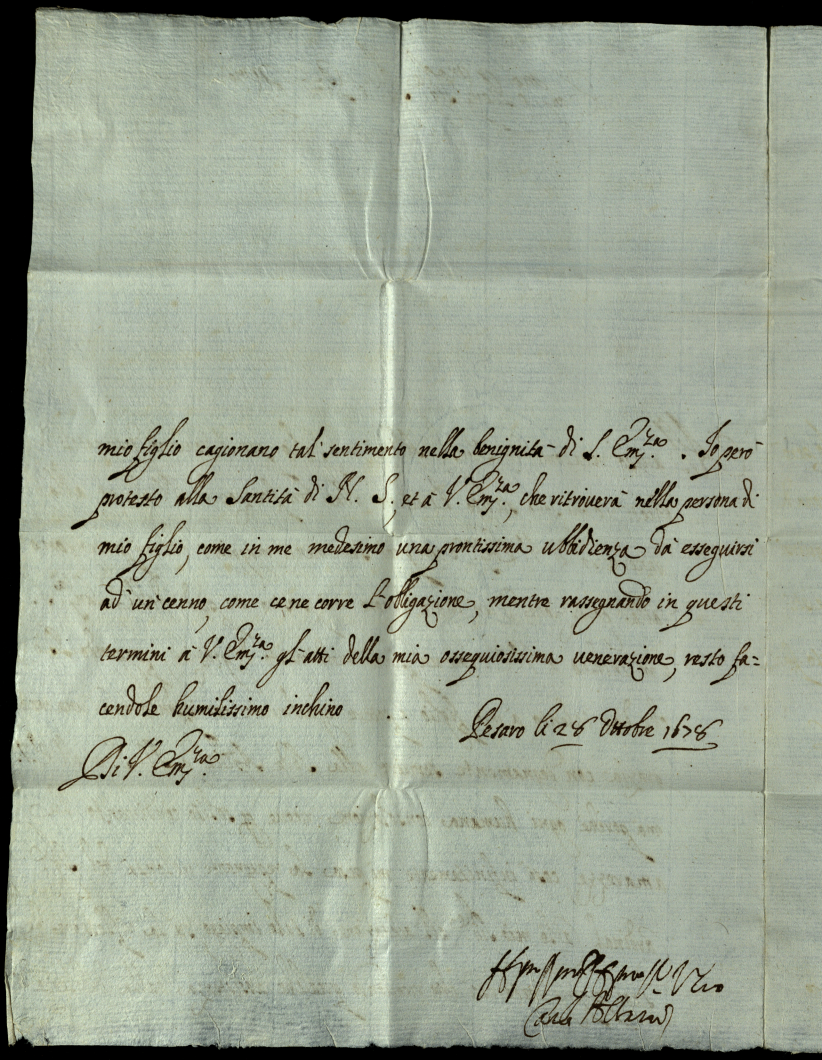 mio figlio cagionano tal sentimento nella benignità di S. Em:za. Io però
protesto alla Santità di N. S. et à V. Em:za, che ritroverà nella persona di
mio figlio, come in me medesimo una prontissima ubbidienza dà esseguirsi
ad' un' cenno, come ce ne corre l'obligazione, mentre rassegnando in questi
termini à V. Em:za gl'atti della mia ossequiosissima venerazione, resto fa=
cendole humilissimo inchino
Pesaro li 28 Ottobre 1678
Di V. Em:za